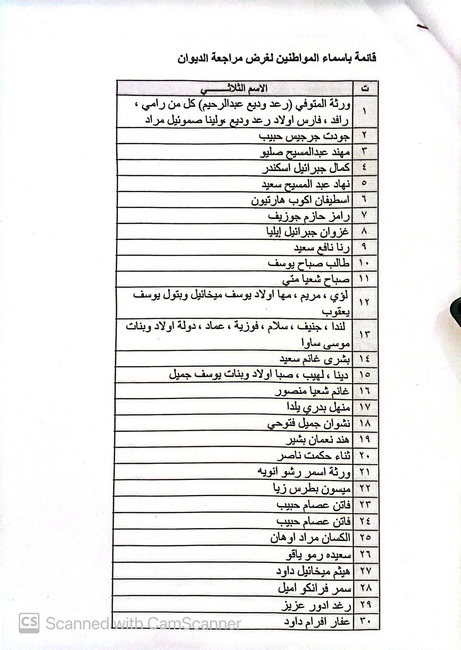 قائمة باسماء المواطنين لغرض مراجعة الديوان
ت الاسم الثلاثي
١ ورثة المتوفي (رعد وديع عبدالرحيم) كل من رامي ،
رافد ، فارس اولاد رعد وديع ،ولينا صموئيل مراد
٢ جودت جرجيس حبيب
٣ مهند عبدالمسيح صليو
٤ كمال جبرائيل اسكندر
٥ نهاد عبد المسيح سعيد
٦ اسطيفان اكوب هارتيون
٧ رامز حازم جوزيف
٨ غزوان جبرائيل إيليا
٩ رنا نافع سعيد
١٠ طالب صباح يوسف
١١ صباح شعيا متي
١٢ لؤي ، مريم ، مها اولاد يوسف ميخائيل وبتول يوسف
يعقوب
١٣ لندا ، جنيف ، سلام ، فوزية ، عماد ، دولة اولاد وبنات
موسى ساوا
١٤ بشرى غانم سعيد
١٥ دينا ، لهيب ، صبا اولاد وبنات يوسف جميل
١٦ غانم شعيا منصور
١٧ منهل بدري يلدا
١٨ نشوان جميل فتوحي
١٩ هند نعمان بشير
٢٠ ثناء حكمت ناصر
٢١ ورثة اسمر رشو انويه
٢٢ ميسون بطرس زيا
٢٣ فاتن عصام حبيب
٢٤ فاتن عصام حبيب
٢٥ الكسان مراد اوهان
٢٦ سعيده رمو ياقو
٢٧ هيثم ميخائيل داود
٢٨ سمر فرانكو اميل
٢٩ رغد ادور عزيز
٣٠ عفار افرام داود
CS Scanned with CamScanner